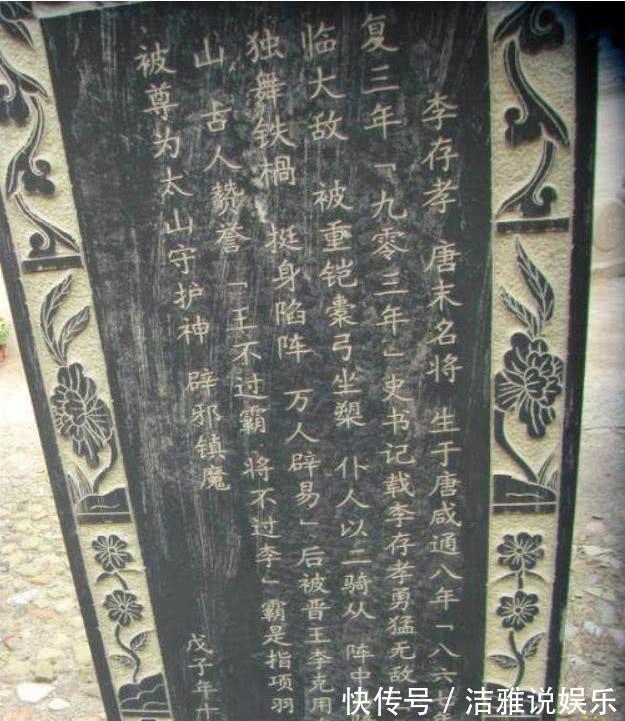 李存孝 唐末名将 生于唐咸通八年「八六七年
复三年「九零三年」史书记载李存孝勇猛无敌
临大敌 被重铠橐弓坐槊 仆人以二骑从 阵中
独舞铁檛 挺身陷阵 万人辟易」后被晋王李克用
山 古人赞誉「王不过霸 将不过李」霸是指项羽
被尊为太山守护神 辟邪镇魔
戊子年十
快传号/洁雅说娱乐